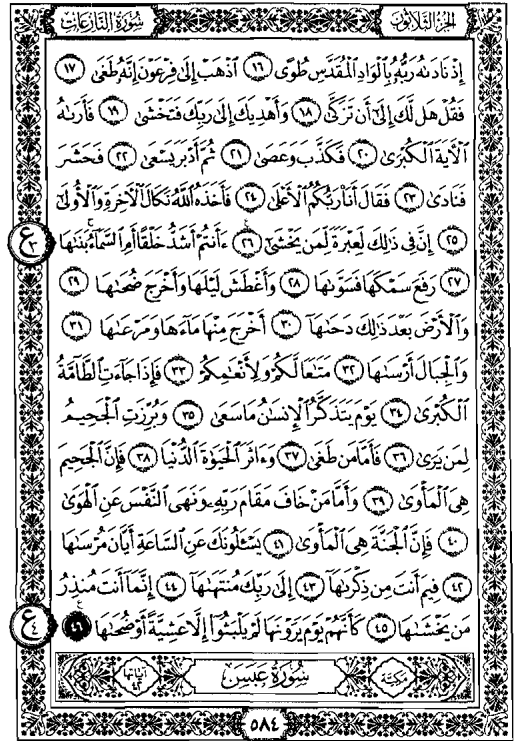 الجزء الثلاثون سورة النازعات
إِذْ نَادَىٰهُ رَبُّهُۥ بِٱلْوَادِ ٱلْمُقَدَّسِ طُوًى ١٦ ٱذْهَبْ إِلَىٰ فِرْعَوْنَ إِنَّهُۥ طَغَىٰ ١٧
فَقُلْ هَل لَّكَ إِلَىٰٓ أَن تَزَكَّىٰ ١٨ وَأَهْدِيَكَ إِلَىٰ رَبِّكَ فَتَخْشَىٰ ١٩ فَأَرَىٰهُ
ٱلْءَايَةَ ٱلْكُبْرَىٰ ٢٠ فَكَذَّبَ وَعَصَىٰ ٢١ ثُمَّ أَدْبَرَ يَسْعَىٰ ٢٢ فَحَشَرَ
فَنَادَىٰ ٢٣ فَقَالَ أَنَا۠ رَبُّكُمُ ٱلْأَعْلَىٰ ٢٤ فَأَخَذَهُ ٱللَّهُ نَكَالَ ٱلْءَاخِرَةِ وَٱلْأُولَىٰٓ
٢٥ إِنَّ فِى ذَٰلِكَ لَعِبْرَةً لِّمَن يَخْشَىٰٓ ٢٦ ءَأَنتُمْ أَشَدُّ خَلْقًا أَمِ ٱلسَّمَآءُ بَنَىٰهَا ع ٣
٢٧ رَفَعَ سَمْكَهَا فَسَوَّىٰهَا ٢٨ وَأَغْطَشَ لَيْلَهَا وَأَخْرَجَ ضُحَىٰهَا ٢٩
وَٱلْأَرْضَ بَعْدَ ذَٰلِكَ دَحَىٰهَآ ٣٠ أَخْرَجَ مِنْهَا مَآءَهَا وَمَرْعَىٰهَا ٣١
وَٱلْجِبَالَ أَرْسَىٰهَا ٣٢ مَتَٰعًا لَّكُمْ وَلِأَنْعَٰمِكُمْ ٣٣ فَإِذَا جَآءَتِ ٱلطَّآمَّةُ
ٱلْكُبْرَىٰ ٣٤ يَوْمَ يَتَذَكَّرُ ٱلْإِنسَٰنُ مَا سَعَىٰ ٣٥ وَبُرِّزَتِ ٱلْجَحِيمُ
لِمَن يَرَىٰ ٣٦ فَأَمَّا مَن طَغَىٰ ٣٧ وَءَاثَرَ ٱلْحَيَوٰةَ ٱلدُّنْيَا ٣٨ فَإِنَّ ٱلْجَحِيمَ
هِىَ ٱلْمَأْوَىٰ ٣٩ وَأَمَّا مَنْ خَافَ مَقَامَ رَبِّهِۦ وَنَهَى ٱلنَّفْسَ عَنِ ٱلْهَوَىٰ
٤٠ فَإِنَّ ٱلْجَنَّةَ هِىَ ٱلْمَأْوَىٰ ٤١ يَسْـَٔلُونَكَ عَنِ ٱلسَّاعَةِ أَيَّانَ مُرْسَىٰهَا
٤٢ فِيمَ أَنتَ مِن ذِكْرَىٰهَآ ٤٣ إِلَىٰ رَبِّكَ مُنتَهَىٰهَآ ٤٤ إِنَّمَآ أَنتَ مُنذِرُ
مَن يَخْشَىٰهَا ٤٥ كَأَنَّهُمْ يَوْمَ يَرَوْنَهَا لَمْ يَلْبَثُوٓا۟ إِلَّا عَشِيَّةً أَوْ ضُحَىٰهَا ٤٦ ع ٤
مكية سورة عبس آياتها ٤٢
٥٨٤